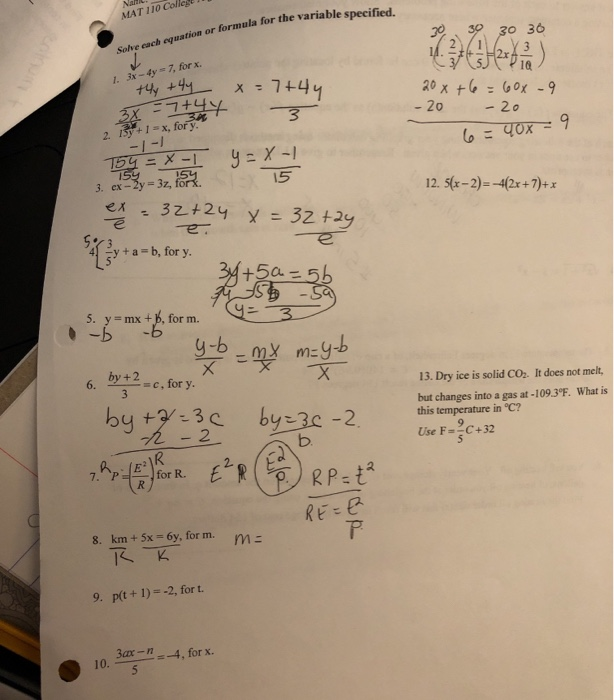 MAT 110 College
Solve each equation or formula for the variable specified.
1. 3x – 4y = 7, for x.
+4y +4y
3x = 7+4y
x = 7+4y
3
2. 15y + 1 = x, for y.
-1 -1
15y = x -1
y = x -1
15
3. ex – 2y = 3z, for x.
ex = 3z+2y
e e
x = 3z+2y
e
5
4. 3/5 y + a = b, for y.
3y+5a = 5b
-5a
y =
3
5. y = mx + b, for m.
-b -b
y-b = mx
x x
m=y-b
x
6. by + 2 = c, for y.
3
by +2 = 3c
-2 -2
by=3c -2
b
7. P = (E²/R) for R.
E² R
E²
P
RP = t²
RE = E²
P
8. km + 5x = 6y, for m.
K K
m =
9. p(t + 1) = -2, for t.
10. 3ax – n = –4, for x.
5
30 30 30 30
11. 2/3 x + 1/5 = 2x – 3/10
20x +6 = 60x -9
-20 -20
6 = 40x = 9
12. 5(x – 2) = –4(2x + 7) + x
13. Dry ice is solid CO₂. It does not melt,
but changes into a gas at -109.3°F. What is
this temperature in °C?
Use F = 9/5 C + 32